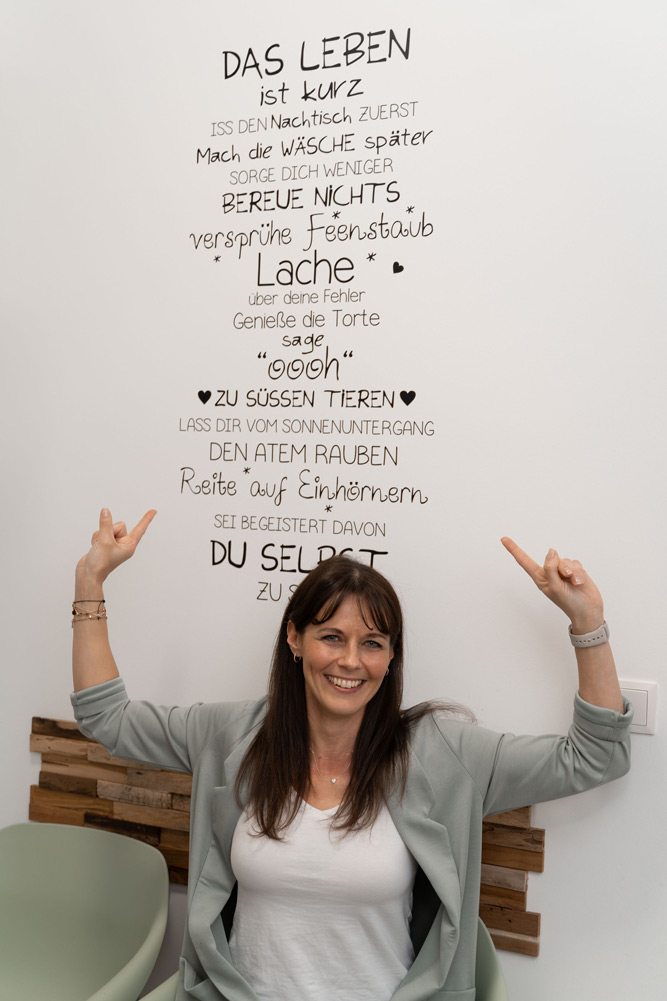 DAS LEBEN
ist kurz
ISS DEN Nachtisch ZUERST
Mach die WÄSCHE später
SORGE DICH WENIGER
BEREUE NICHTS
versprühe Feenstaub
Lache
über deine Fehler
Genieße die Torte
sage
“oooh“
ZU SÜSSEN TIEREN
LASS DIR VOM SONNENUNTERGANG
DEN ATEM RAUBEN
Reite auf Einhörnern
SEI BEGEISTERT DAVON
DU SELBST
ZU